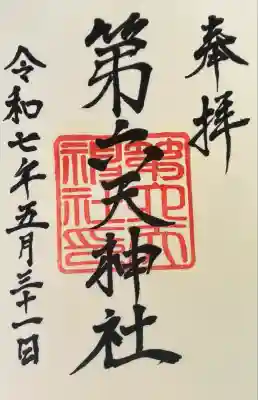 奉拝
第六天神社
第六天神社印
令和七年五月三十一日